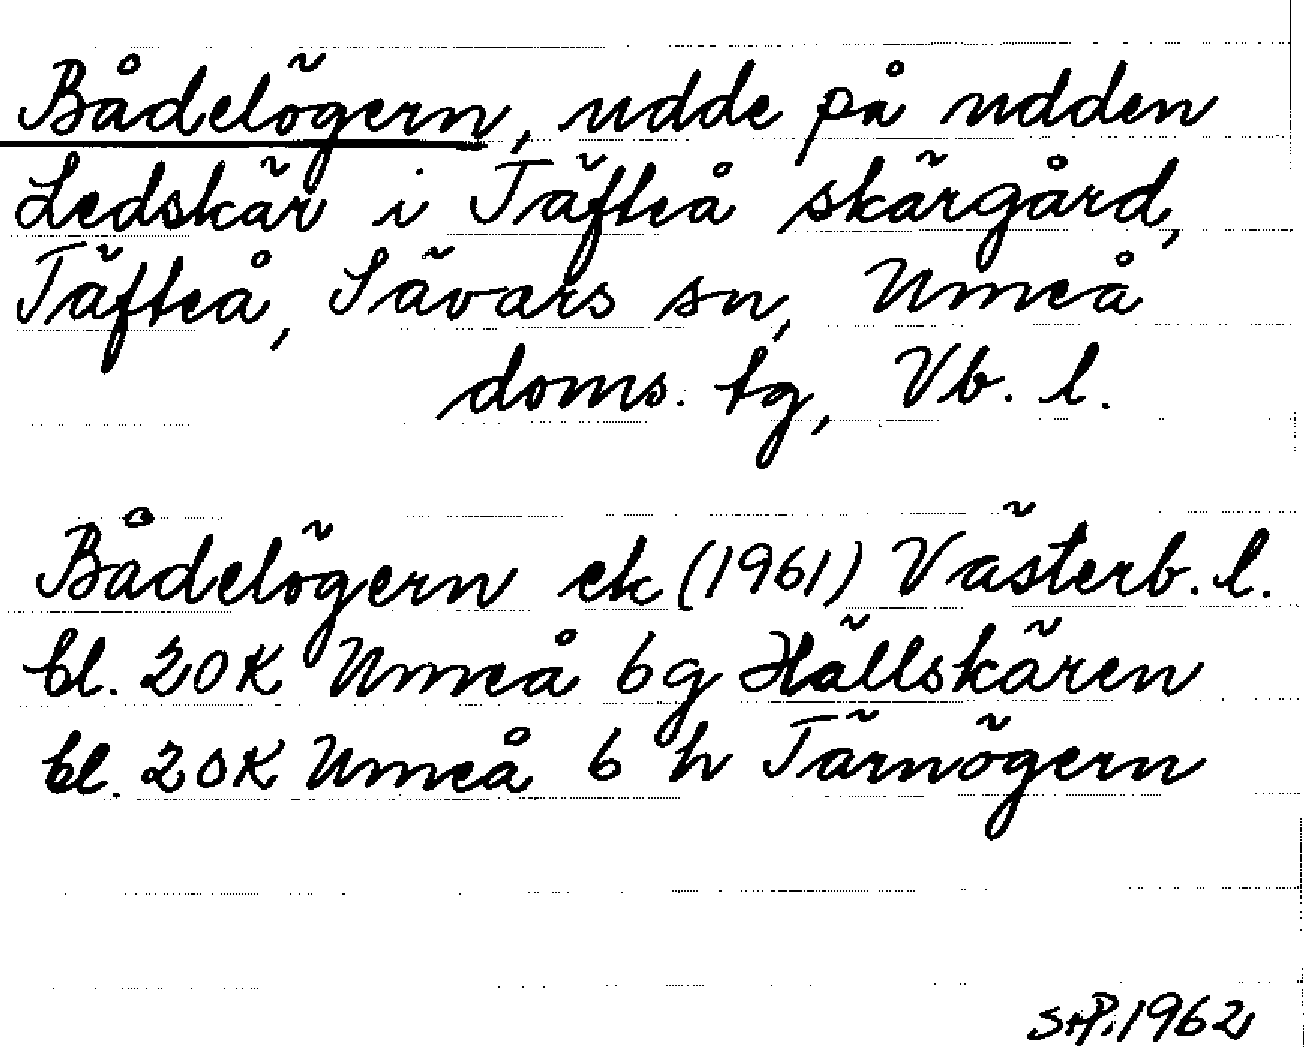 Bådelögern, udde på udden
Ledskär i Täfteå skärgård,
Täfteå, Sävars sn, Umeå
doms. tg, Vb. l.
Bådelögern ek (1961) Västerb. l.
bl. 20K Umeå 6g Hällskären
bl. 20K Umeå 6 h Tärnögern
StP. 1962